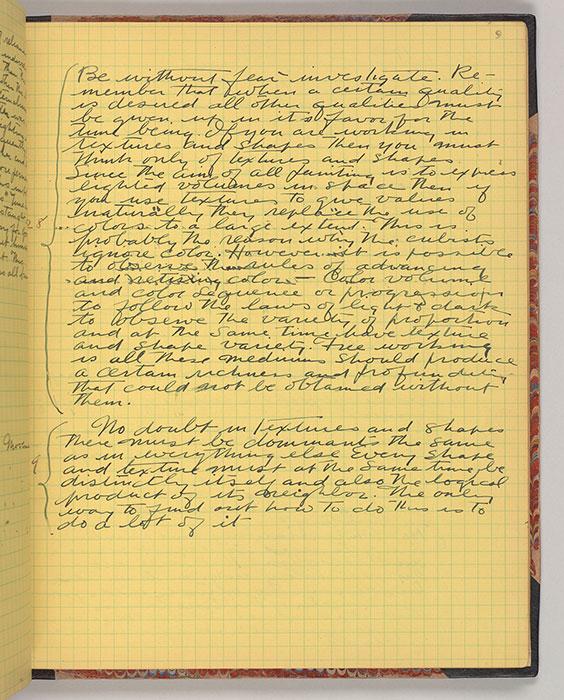 9
Be without fear investigate. Re-
member that when a certain quality
is desired all other qualities must
be given up in it's favor for the
time being. If you are working in
textures and shapes then you must
think only of textures and shapes.
Since the aim of all painting is to express
lighted volumes in space then if
you use textures to give values
naturally they replace the use of
colors to a large extend. This is
probably the reason why the cubists
ignore color. However it is possible
to observe the rules of advancing
and retiring colors - Color volume
and color sequence or progression
to follow the laws of light & dark
to observe the variety of proportion
and at the same time have texture
and shape variety. Free working
is all these mediums should produce
a certain richness and profundity
that could not be obtained without
them.
No doubt in textures and shapes
there must be dominants the same
as in everything else Every shape
and texture must at the same time be
distinctly itself and also the logical
product of its neighbor. The only
way to find out how to do this is to
do a lot of it
8
9